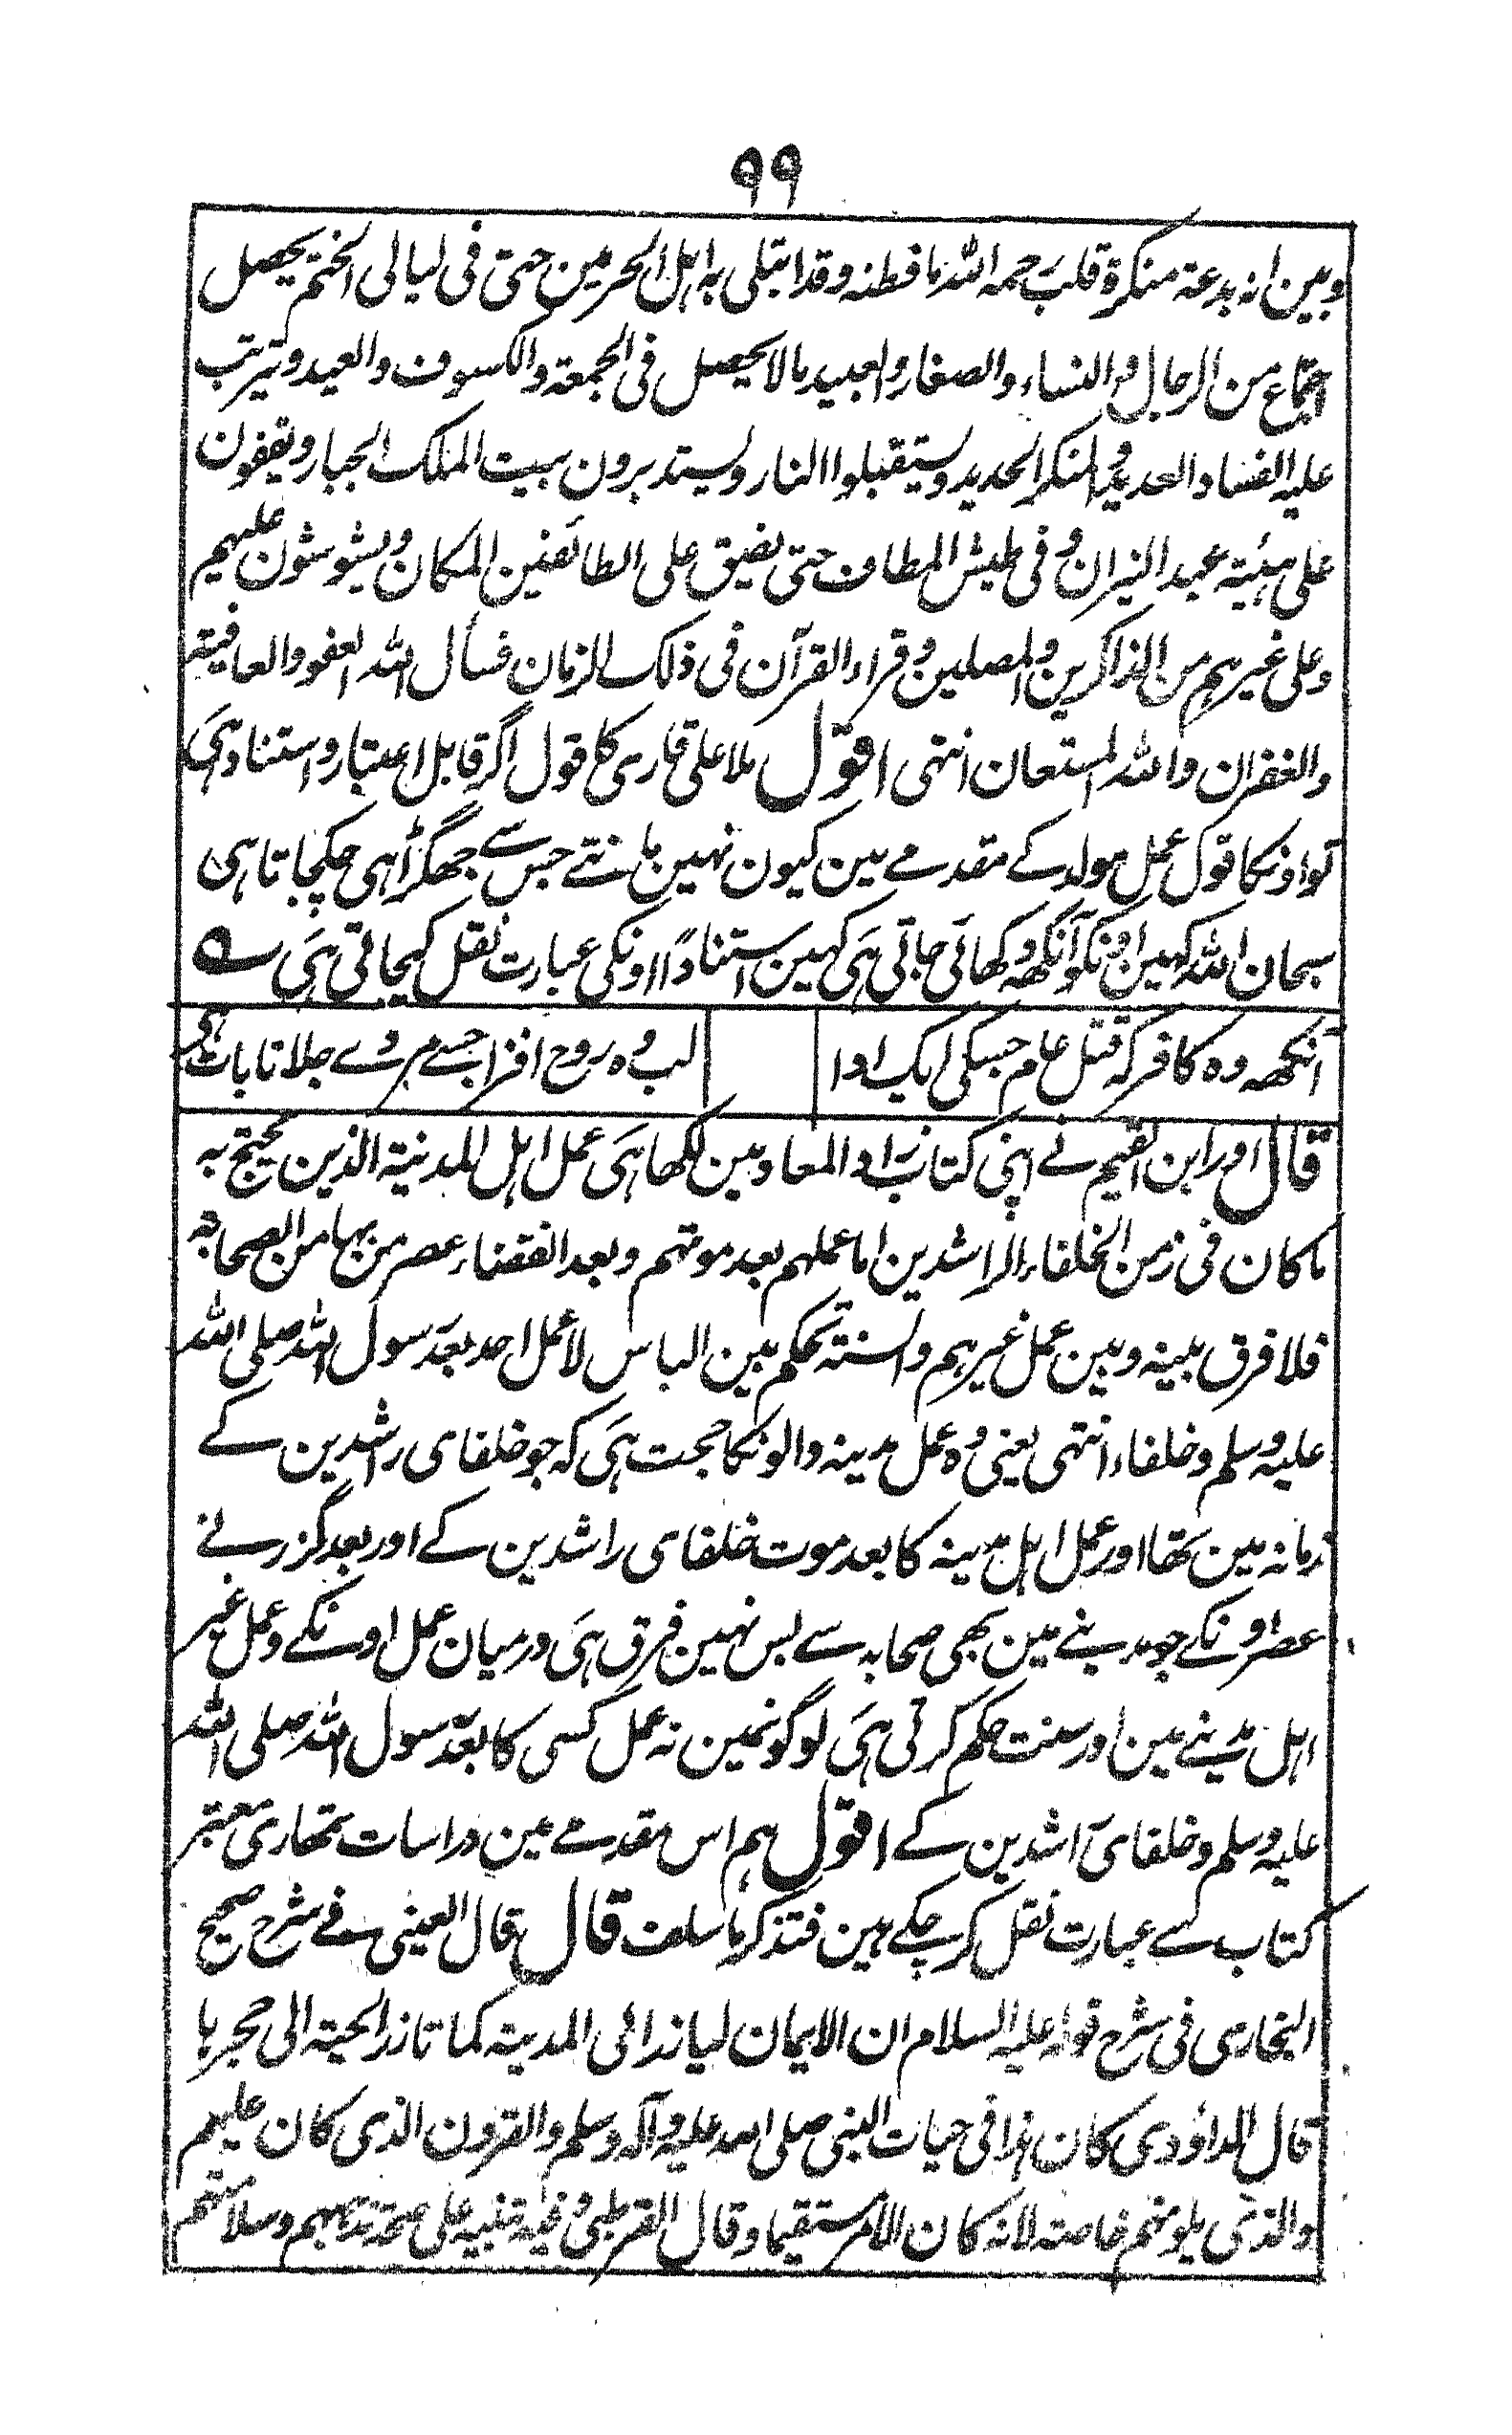 ۹۹
وبین انہ بدعۃ منکرۃ قلت رحمہ اللہ ما فطنہ وقد ابتلی بہ اہل الحرمین حتی فی لیالی الختم یحصل
اجتماع من الرجال والنساء والصغار والعبید مالا یحصل فی الجمعۃ والکسوف والعید ویترتب
علیہ الفساد العدیدۃ والمنکر الجدید ویستقبلوا النار ویستدبرون ببیت الملک الجبار ویقفون
علی ہیئیۃ عبد النیران و فی المطاف حتی یضیق علی الطائفین المکان ویشوشون علیہم
وعلی غیرہم من الذاکرین والمصلین وقراء القرآن فی ذلک الزمان فنسأل اللہ العفو والعافیتہ
والغفران واللہ المستعان انتہی اقول ملا علی قاری کا قول اگر قابل اعتبار و استناد ہی
تو اونکا قول عمل مولد کے مقدمے مین کیون نہین مانتے جس سے جھگڑا ہی چکچاتا ہی
سبحان اللہ کہین اونکو آنکھ دکھائی جاتی ہی کہین استناداً اونکی عبارت نقل کیجاتی ہی ؎
آنکھہ وہ کافر کہ قتل عام جسکی ایک ادا
لب وہ روح افزا جسے مردے جلانا بات ہی
قال اور ابن القیم نے اپنی کتاب زاد المعاد مین لکھا ہی عمل اہل المدینۃ الذین یحتج بہ
ما کان فی زمن الخلفاء الراشدین اما عملہم بعد موتہم وبعد انقضاء عصر من بہا من الصحابۃ
فلا فرق بینہ وبین عمل غیرہم والسنتہ تحکم بین الناس لا عمل احد بعد رسول اللہ صلی اللہ
علیہ وسلم وخلفاء انتہی یعنی وہ عمل مدینہ والونکا حجت ہی کہ جو خلفای راشدین کے
زمانہ مین تھا اور عمل اہل مدینہ کا بعد موت خلفای راشدین کے اور بعد گزرنے
عصر اونکے جو مدینے مین تھی صحابہ سے بس نہین فرق ہی درمیان عمل اونکے وعمل غیر
اہل مدینے مین اور سنت حکم کرتی ہی لوگونمین نہ عمل کسی کا بعد رسول اللہ صلی اللہ
علیہ وسلم وخلفای راشدین کے اقول ہم اس مقدمے مین دراسات تمھاری معتبر
کتاب سے عبارت نقل کر چکے ہین فتذکر ما سلف قال قال العینی فے شرح صحیح
البخاری فی شرح قولہ علیہ السلام ان الایمان لیاندا الی المدینۃ کما تازر الحیۃ الی حجرہا
قال الداؤدی کان ہذا فی حیات النبی صلی اللہ علیہ وآلہ وسلم والقرون الذی کان علیہم
والذی یلونہم خاصتہ لانہ کان الامر مستقیما وقال القرطبی وفیہ تنبیہ علی صحۃ مذہبہم وسلامتہم